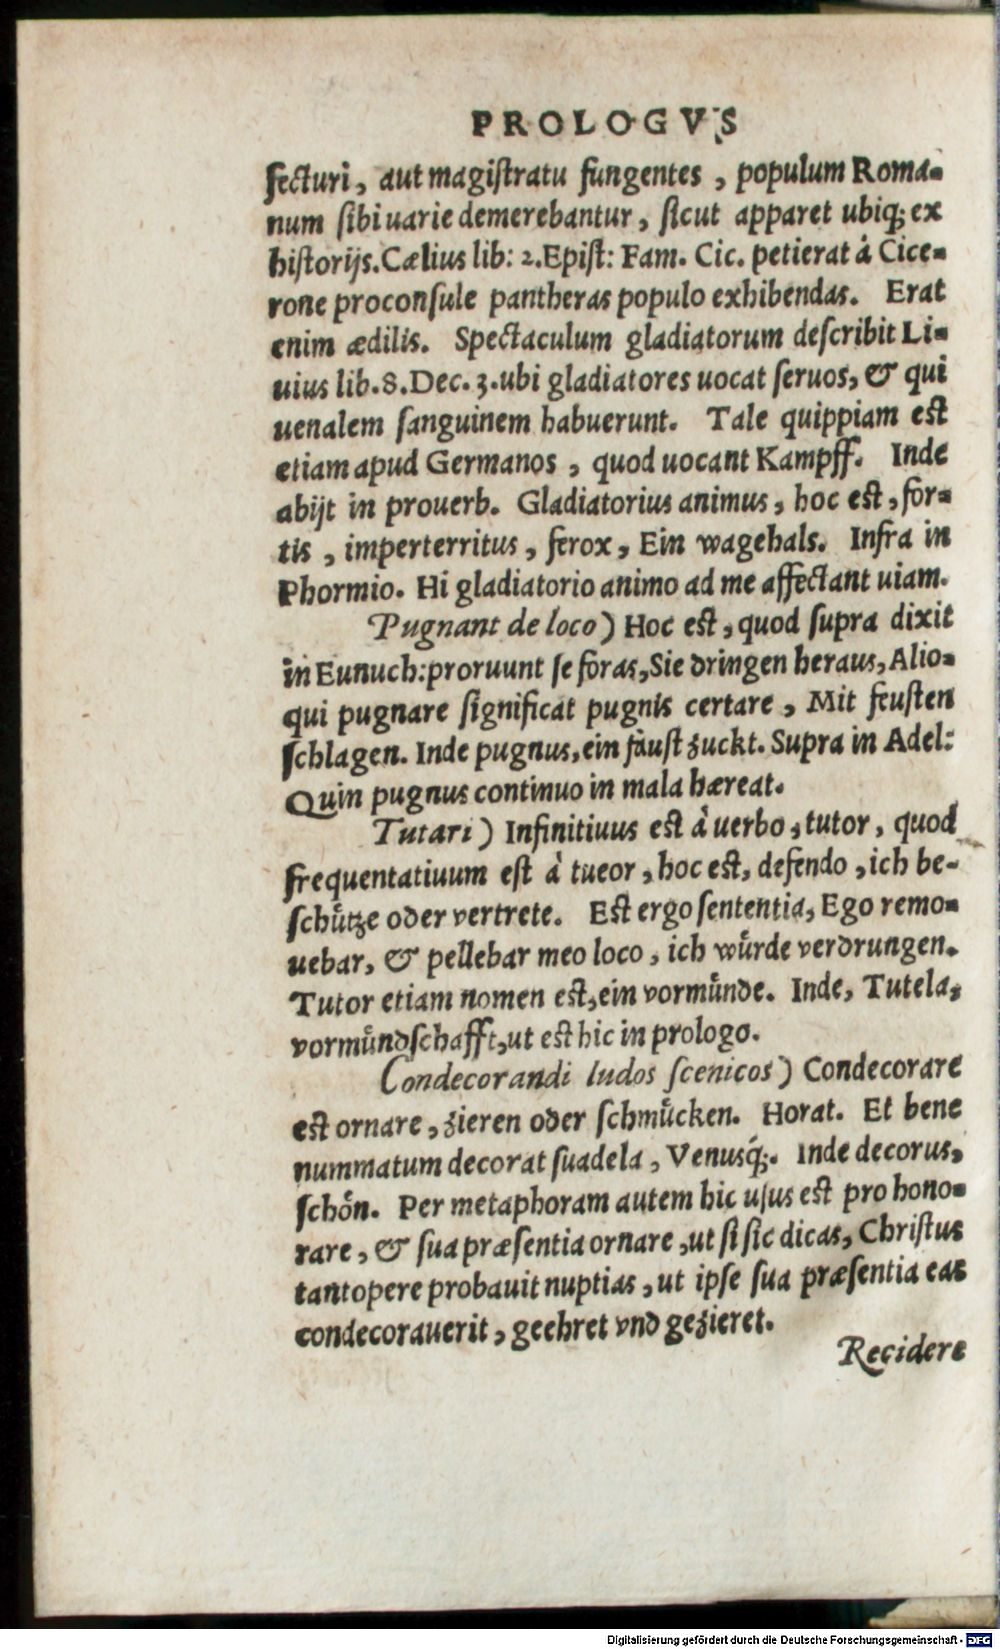 PROLOGVS
fecturi, aut magiſtratu fungentes, populum Roma-
num ſibi uarie demerebantur, ſicut apparet ubiq; ex
hiſtorijs. Cælius lib: 2. Epiſt: Fam. Cic. petierat á Cice-
rone proconſule pantheras populo exhibendas. Erat
enim ædilis. Spectaculum gladiatorum deſcribit Li-
uius lib. 8. Dec. 3. ubi gladiatores uocat ſeruos, & qui
uenalem ſanguinem habuerunt. Tale quippiam eſt
etiam apud Germanos, quod uocant Kampff. Inde
abijt in prouerb. Gladiatorius animus, hoc eſt, for-
tis, imperterritus, ferox, Ein wagehals. Infra in
Phormio. Hi gladiatorio animo ad me affectant uiam.
Pugnant de loco) Hoc eſt, quod ſupra dixit
in Eunuch: proruunt ſe foras, Sie dringen heraus, Alio-
qui pugnare ſignificat pugnis certare, Mit feuſten
ſchlagen. Inde pugnus, ein fauſt zuckt. Supra in Adel:
Quin pugnus continuo in mala hæreat.
Tutari) Infinitiuus eſt à uerbo, tutor, quod
frequentatiuum eſt à tueor, hoc eſt, defendo, ich be-
ſchuͤtze oder vertrete. Eſt ergo ſententia, Ego remo-
uebar, & pellebar meo loco, ich wuͤrde verdrungen.
Tutor etiam nomen eſt, ein vormuͤnde. Inde, Tutela,
vormuͤndſchafft, ut eſt hic in prologo.
Condecorandi ludos ſcenicos) Condecorare
eſt ornare, zieren oder ſchmuͤcken. Horat. Et bene
nummatum decorat ſuadela, Venusq́;. Inde decorus,
ſchoͤn. Per metaphoram autem hic uſus eſt pro hono-
rare, & ſua præſentia ornare, ut ſi ſic dicas, Chriſtus
tantopere probauit nuptias, ut ipſe ſua præſentia eas
condecorauerit, geehret vnd gezieret.
Recidere
Digitalisierung gefördert durch die Deutsche Forschungsgemeinschaft - DFG